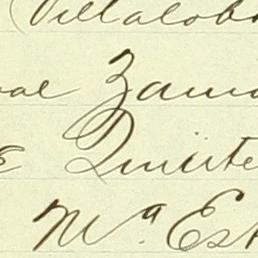 (Villalobo
oal Zamo
E Quinte
Mª Est